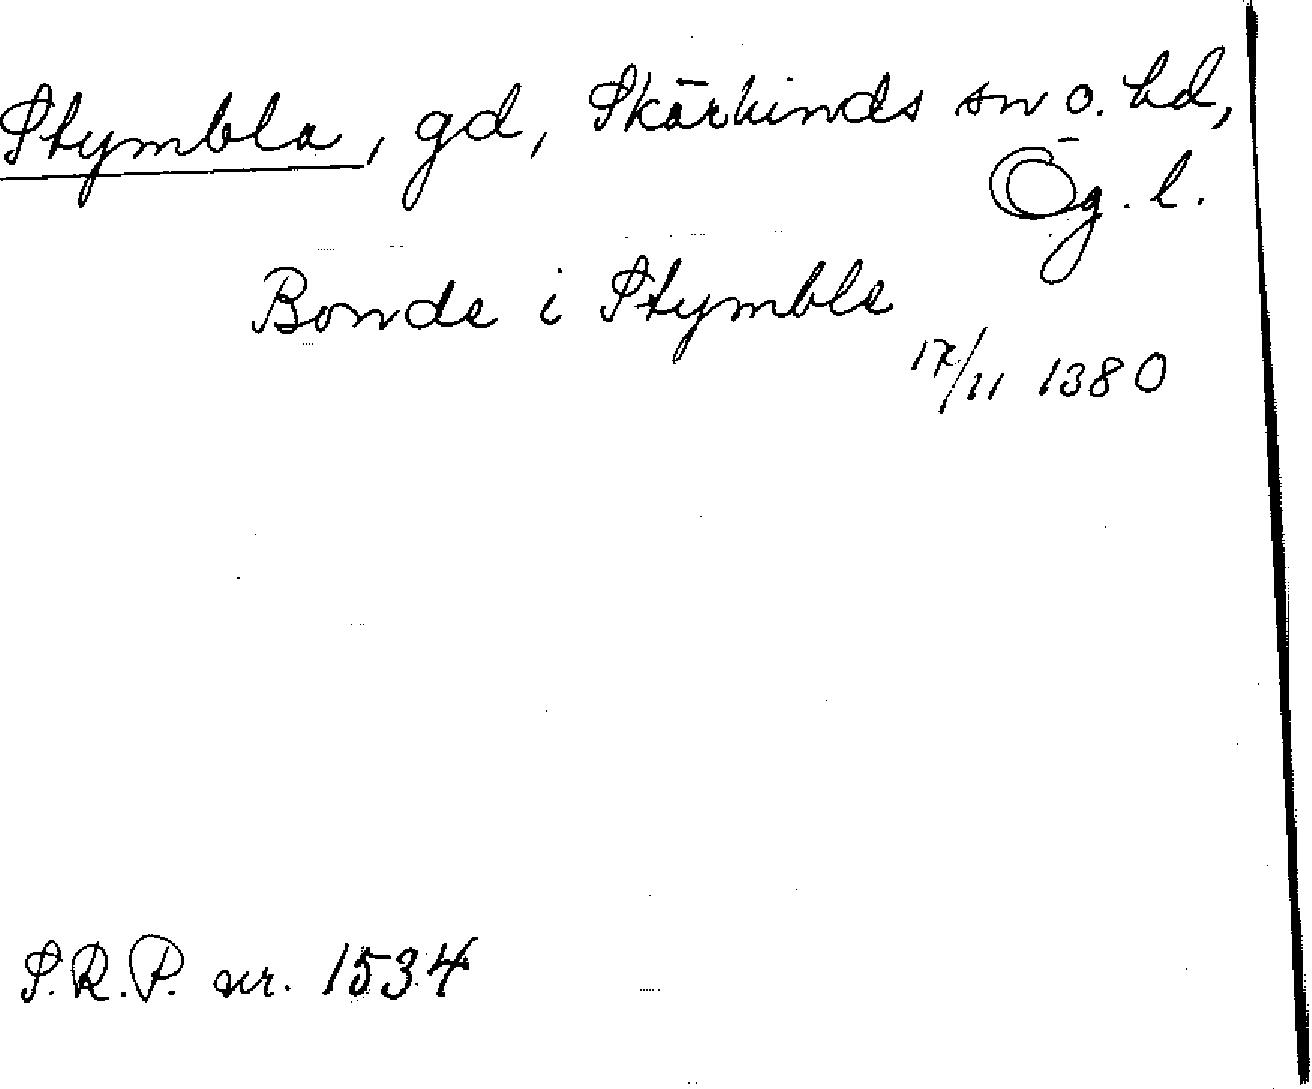 Stymbla, gd, Skärkinds sn o. hd,
Ög. l.
Bonde i Stymble
17/11 1380
S.R.P. nr. 1534